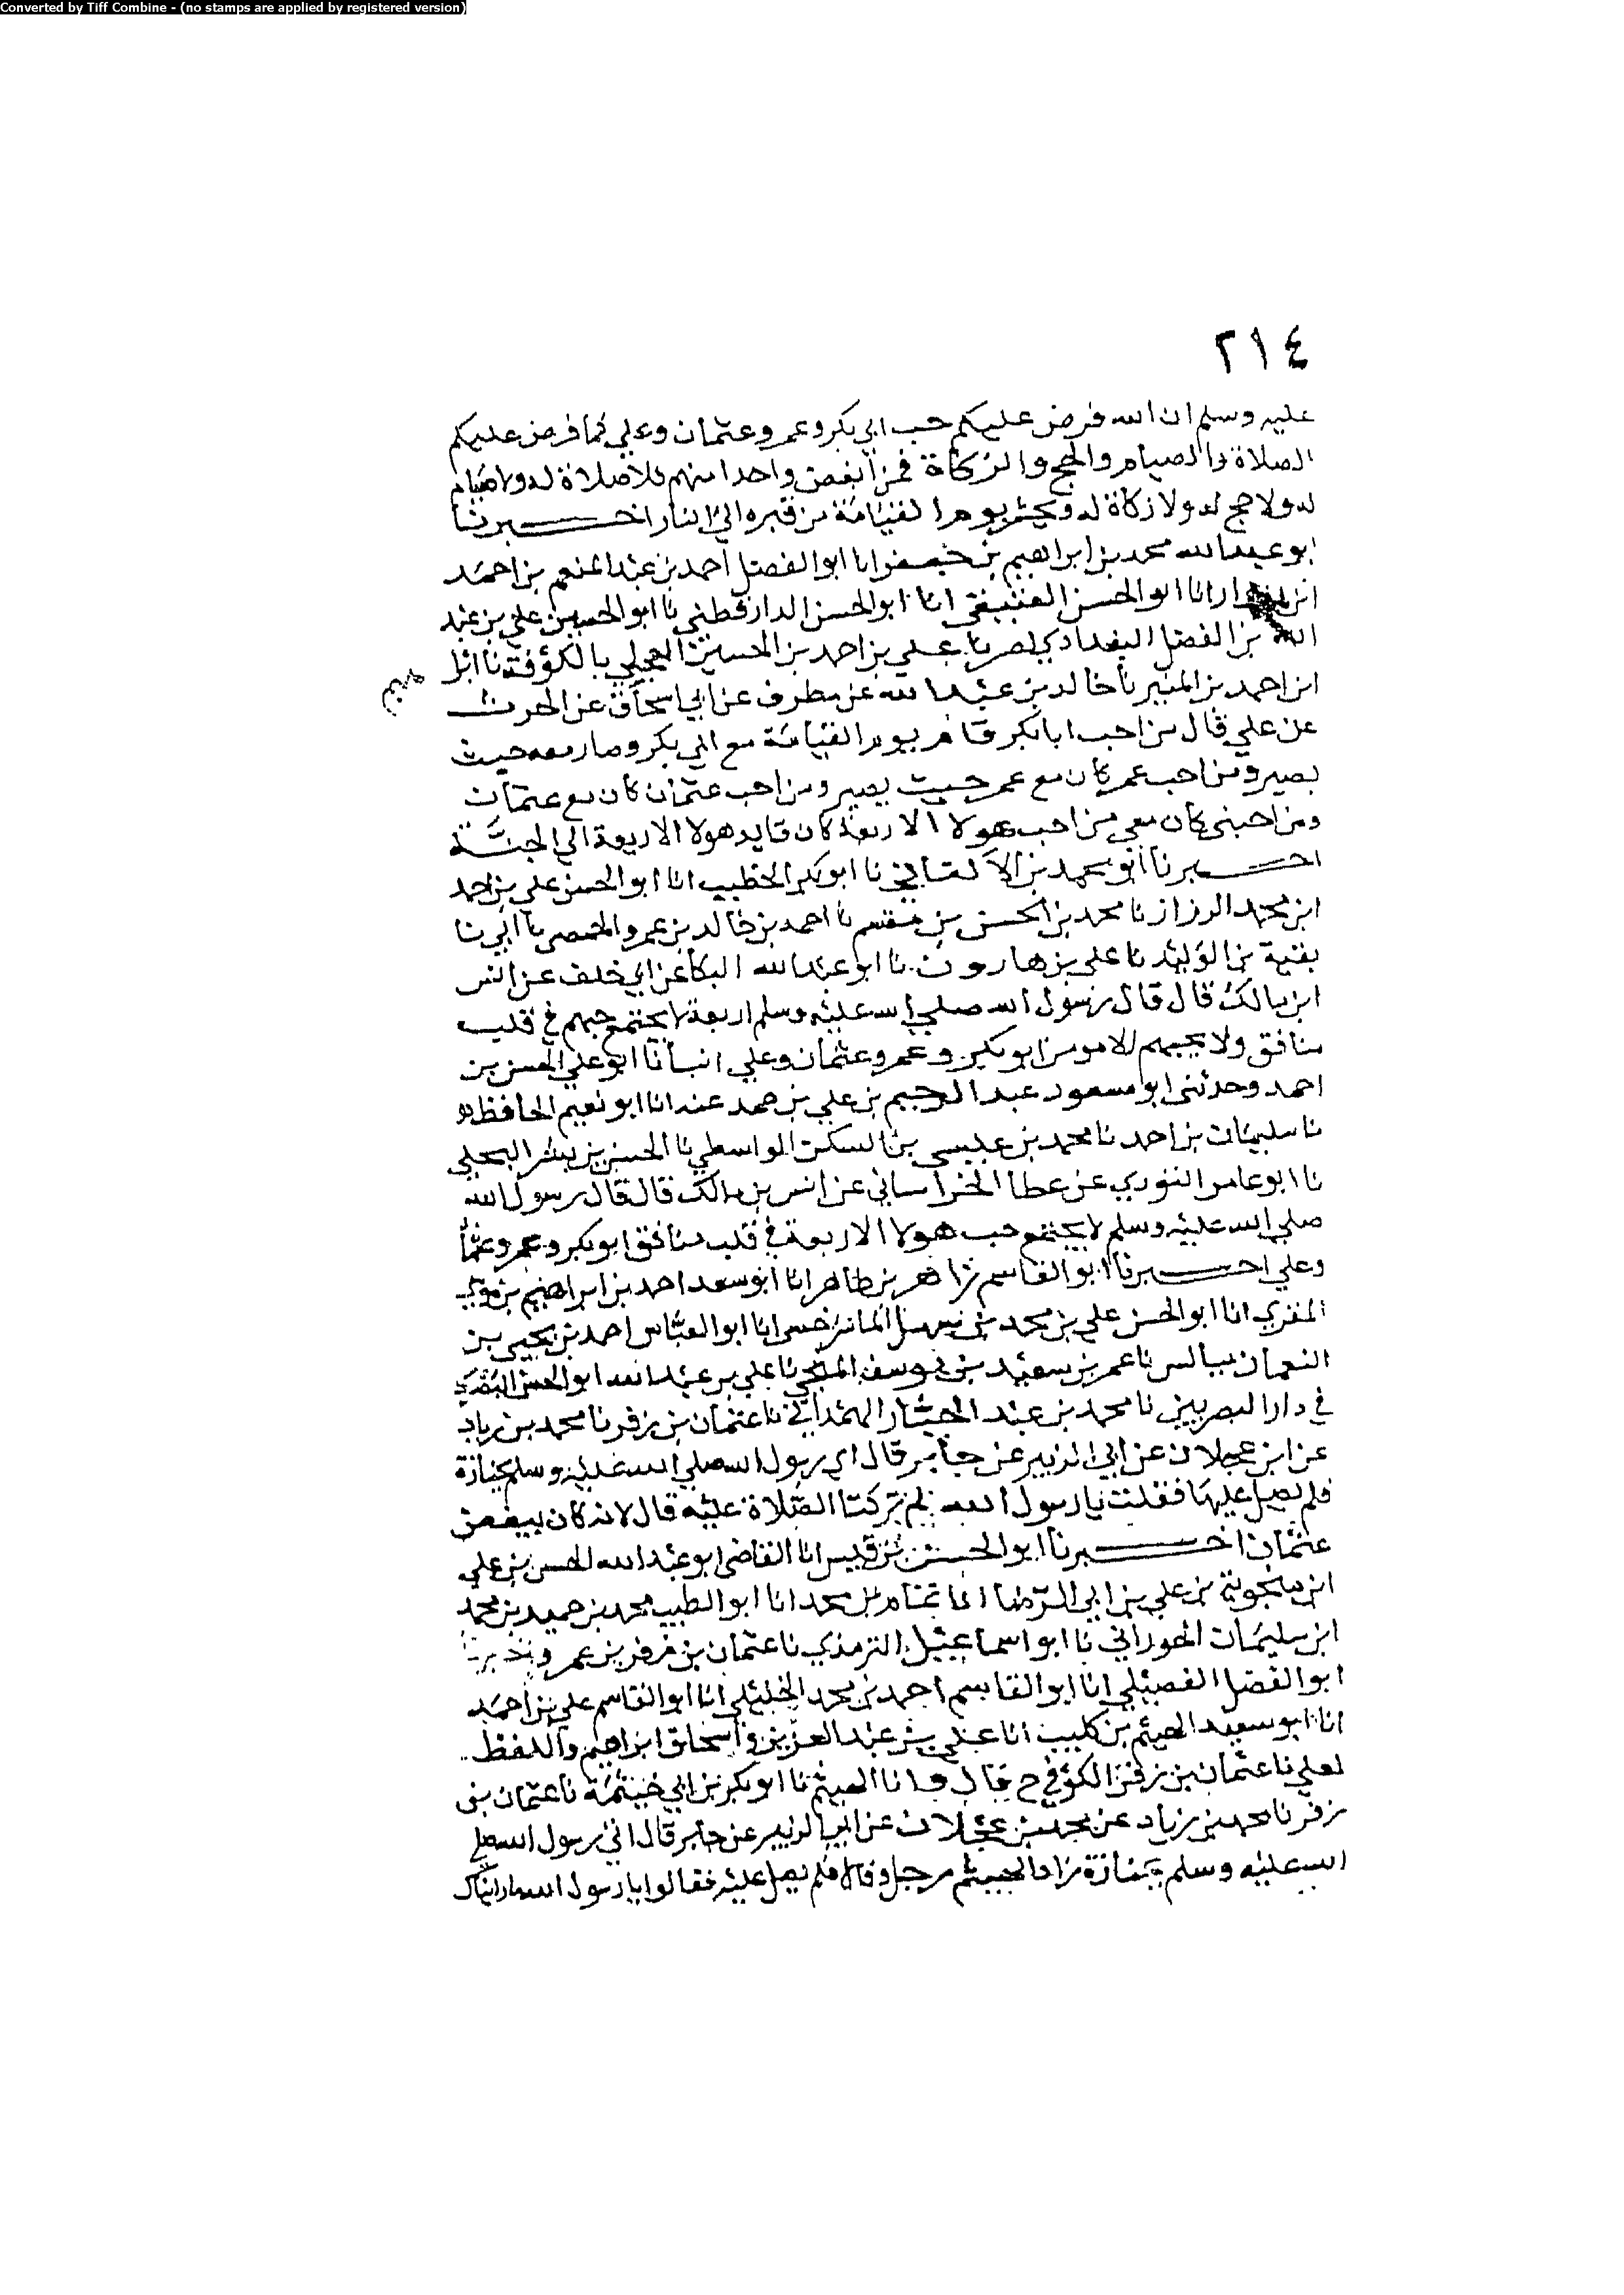 Converted by Tiff Combine - (no stamps are applied by registered version)
٢١٤
عليه وسلم ان الله فرض عليكم حب ابي بكر وعمر وعثمان وعلي كما فرض عليكم
الصلاة والصيام والحج والزكاة فمن ابغض واحدا منهم فلا صلاة له ولا صيام
له ولا حج له ولا زكاة له ويحشر يوم القيامة من قبره الي النار اخبرنا
ابو عبد الله محمد بن ابراهيم بن جعفر انا ابو الفضل احمد بن عبد المنعم بن احمد
ابن بندار انا ابو الحسن العتيقي انا ابو الحسن الدارقطني نا ابو الحسين علي بن عبد
الله بن الفضل البغدادي بمصر نا علي بن احمد بن الحسين العجلي بالكوفة نا
ابن احمد بن المنير نا خالد بن عبد الله عن مطرف عن ابي اسحاق عن الحرث
عن علي قال من احب ابا بكر قام يوم القيامة مع ابي بكر وصار معه حيث
يصير ومن احب عمر كان مع عمر حيث يصير ومن احب عثمان كان مع عثمان
ومن احبني كان معي من احب هولا الاربعة كان قايد هولا الاربعة الي الجنة
اخبرنا ابو محمد بن الاكفاني نا ابو بكر الخطيب انا ابو الحسن علي بن احمد
ابن محمد الرزاز نا محمد بن الحسن بن مقسم نا احمد بن خالد بن عمرو الحمصي نا ابي نا
بقية بن الوليد نا علي بن هارون نا ابو عبد الله البكا عن ابي خلف عن انس
ابن مالك قال قال رسول الله صلي الله عليه وسلم اربعة لا يجتمع حبهم في قلب
منافق ولا يحبهم الا مومن ابو بكر وعمر وعثمان وعلي انبانا ابو علي الحسن بن
احمد وحدثني ابو مسعود عبد الرحيم بن علي بن حمد عنه انا ابو نعيم الحافظ
نا سليمان بن احمد نا محمد بن عيسي بن السكن الواسطي نا الحسن بن بشر البجلي
نا ابو عامر الثوري عن عطا الخراساني عن انس بن مالك قال قال رسول الله
صلي الله عليه وسلم لا يجتمع حب هولا الاربعة في قلب منافق ابو بكر وعمر وعثمان
وعلي اخبرنا ابو القاسم زاهر بن طاهر انا ابو سعد احمد بن ابراهيم بن موسي
المقري انا ابو الحسن علي بن محمد بن سهل الماسرخسي انا ابو العباس احمد بن يحيي بن
النعمان ببالس نا عمر بن سعيد بن يوسف المنبجي نا علي بن عبد الله ابو الحسن البصري
في دار البصريين نا محمد بن عبد الجبار الهمداني نا عثمان بن زفر نا محمد بن زياد
عن ابن عجلان عن ابي الزبير عن جابر قال اتي رسول الله صلي الله عليه وسلم بجنازة
فلم يصل عليها فقلت يا رسول الله لم تركت الصلاة عليه قال لانه كان يبغض
عثمان اخبرنا ابو الحسن بن قبيس انا القاضي ابو عبد الله الحسن بن علي
ابن بن علي بن ابي الرضا انا تمام بن محمد انا ابو الطيب محمد بن حميد بن محمد
ابن سليمان الحوراني نا ابو اسماعيل الترمذي نا عثمان بن زفر بن عمر واخبرنا
ابو الفضل الفضيلي انا ابو القاسم احمد بن محمد الخليلي انا ابو القاسم علي بن احمد
انا ابو سعيد الهيثم بن كليب انا علي بن عبد العزيز واسحاق بن ابراهيم واللفظ
لعلي نا عثمان بن زفر الكوفي ح قال وانا الهيثم نا ابو بكر بن ابي خيثمة نا عثمان بن
زفر نا محمد بن زياد عن محمد بن عجلان عن ابي الزبير عن جابر قال اتي رسول الله صلي
الله عليه وسلم بجنازة زاد الهيثم رجل وقالا فلم يصل عليه فقالوا يا رسول الله ما رايناك